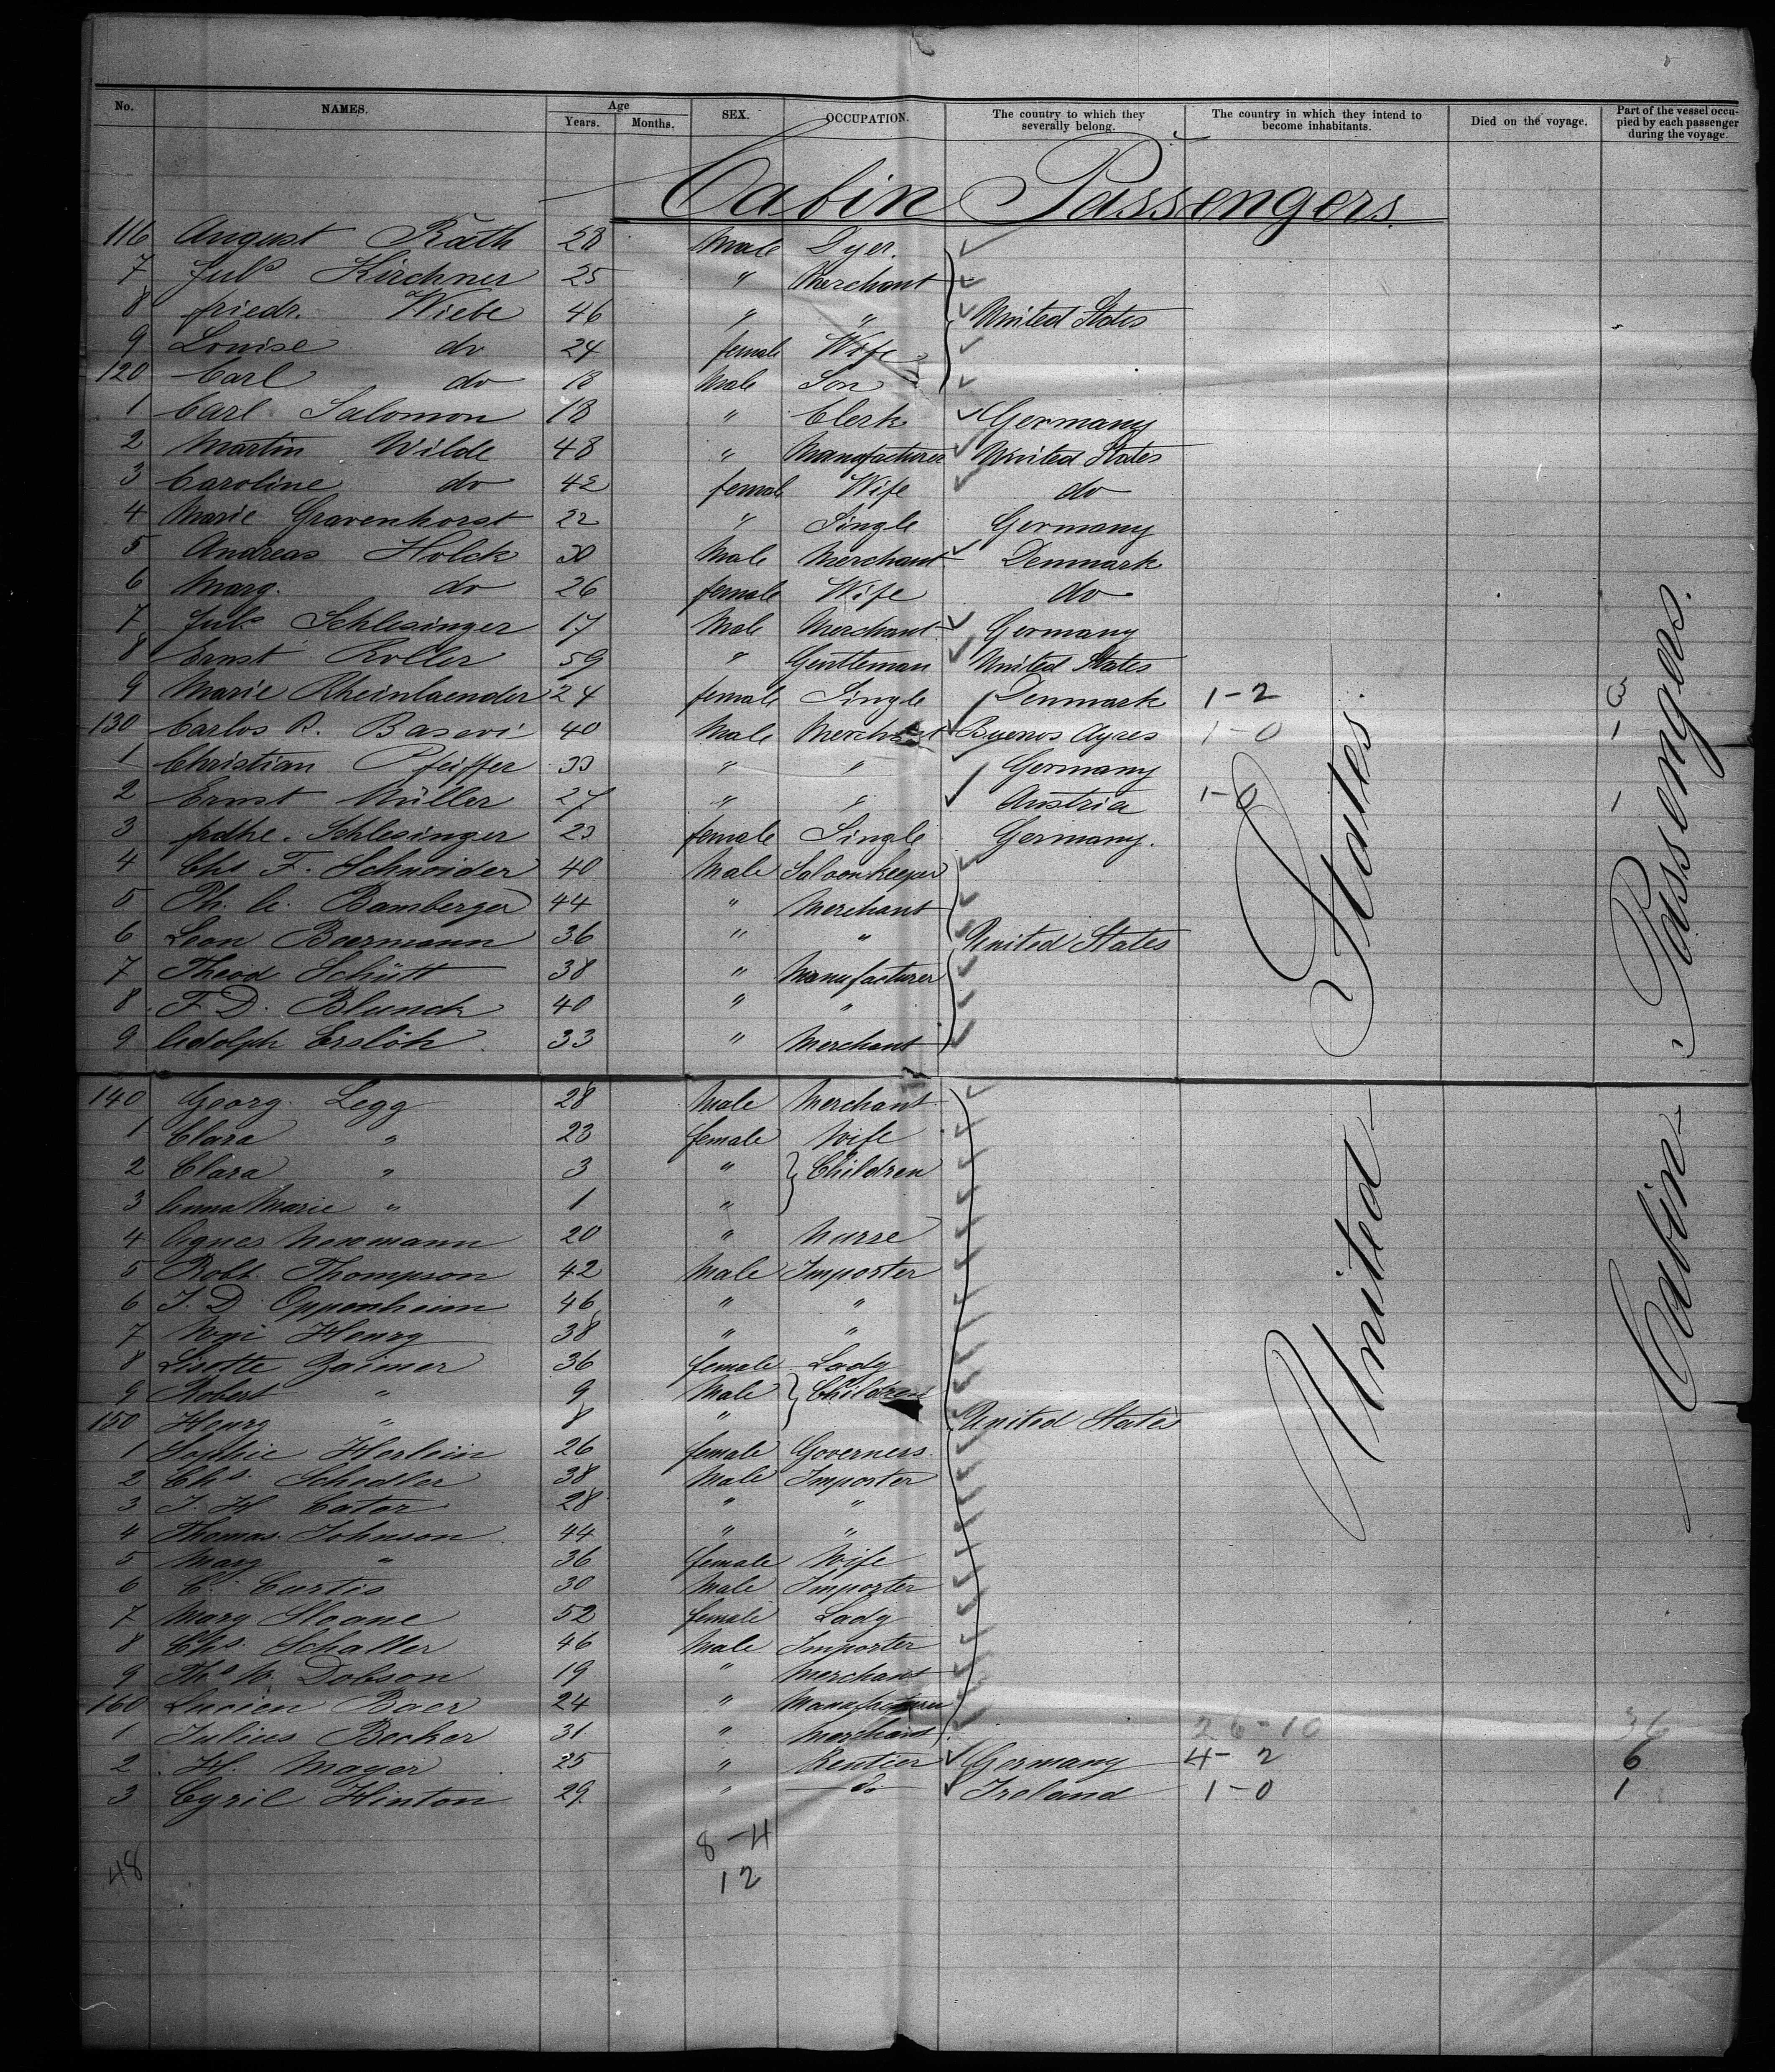 No. NAMES. Age Years. Months. SEX. OCCUPATION. The country to which they severally belong. The country in which they intend to become inhabitants. Died on the voyage. Part of the vessel occupied by each passenger during the voyage.
Cabin Passengers.
116 August Räth 28 Male Dyer.
7 Juls Kirchner 25 " Merchant
8 friedr. Wiebe 46 " " United States
9 Louise do 24 female Wife
120 Carl do 18 Male Son
1 Carl Salomon 18 " Clerk Germany
2 Martin Wilde 48 " Manufacturer United States
3 Caroline do 42 female Wife do
4 Marie Gravenhorst 22 " Single Germany
5 Andreas Holck 30 Male Merchant Denmark
6 Marg. do 26 female Wife do
7 Juls Schlesinger 17 Male Merchant Germany
8 Ernst Roller 59 " Gentleman United States
9 Marie Rheinlaender 24 female Single Denmark 1-2 3
130 Carlos R. Basevi 40 Male Merchant Buenos Ayres 1-0 1
1 Christian Pfeiffer 33 " " Germany
2 Ernst Müller 27 " " Austria 1-0 1
3 Schlesinger 23 female Single Germany.
4 Chs F. Schneider 40 Male Saloonkeeper
5 Ph. C. Bamberger 44 " Merchant
6 Leon Baermann 36 " " United States
7 Theod Schütt 38 " Manufacturer
8 F. D. Blunck 40 " "
9 Adolph Erslöh 33 " Merchant
140 Georg Legg 28 Male Merchant
1 Clara " 23 female Wife
2 Clara " 3 " Children
3 Anna Marie " 1 "
4 Agnes Newmann 20 " Nurse
5 Robt. Thompson 42 Male Importer
6 J. D. Oppenheim 46 " "
7 Henry 38 " "
8 Lisette Zaimer 36 female Lady
9 Robert " 9 Male Children
150 Henry " 8 " United States
1 Sophie Herlein 26 female Governers.
2 Chs. Schedler 38 Male Importer
3 J. H. Cater 28 " "
4 Thomas Johnson 44 " "
5 Mary " 36 female Wife
6 C. Curtis 30 Male Importer
7 Mary Sloane 52 female Lady
8 Chs. Schaller 46 Male Importer
9 Ths W. Dobson 19 " Merchant
160 Lucien Baer 24 " Manufacturer
1 Julius Becker 31 " Merchant 26-10 36
2 H. Mayer 25 " Rentier Germany 4-2 6
3 Cyril Hinton 29 " do Ireland 1-0 1
United States.
Cabin Passengers.
8-4
48 12